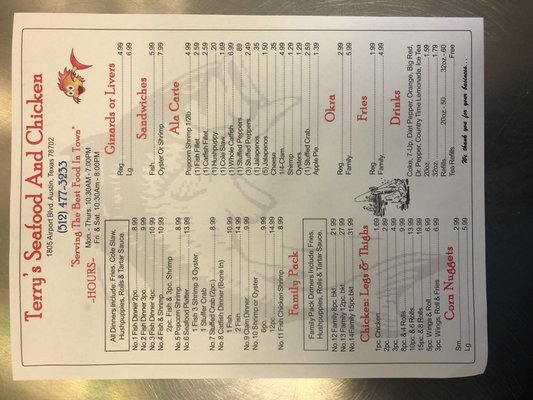 Terry's Seafood And Chicken
1805 Airport Blvd. Austin, Texas 78702
(512) 477-3233
"Serving The Best Food In Town"
-HOURS-
Mon. - Thurs. 10:30AM - 7:00PM
Fri. & Sat. 10:30Am - 8:00PM
All Dinners Include: Fries, Cole Slaw,
Hushpuppies, Rolls & Tartar Sauce.
No.1 Fish Dinner 2pc 8.99
No.2 Fish Dinner 3pc 9.99
No.3 Fish Dinner 4pc 10.99
No.4 Fish & Shrimp 10.99
2pc. Fish & 3pc. Shrimp
No.5 Popcorn Shrimp 8.99
No.6 Seafood Platter 13.99
1 Fish 3 Shrimp 3 Oyster
1 Stuffer Crab
No.7 Stuffed Crab (2pc) 8.99
No.8 Catfish Dinner (Bone In)
1 Fish 10.99
2 Fish 14.99
No.9 Clam Dinner 9.99
No.10 Shrimp or Oyster
6pc. 9.99
12pc. 14.99
No.11 Fish Chicken Shrimp 8.99
Family Pack
Family Pack Dinners Include: Fries,
Hushpuppies, Rolls & Tartar Sauce.
No.12 Family 8pc. bkt. 21.99
No.13 Family 12pc. bkt. 27.99
No.14 Family 15pc. bkt. 31.99
Chicken: Legs & Thighs
1pc. Chicken 1.69
2pc. 2.89
3pc. 4.99
8pc. & 4 Rolls 9.99
10pc. & 6 Rolls 13.99
15pc. & 8 Rolls 19.99
5pc. Wings & Roll 6.99
3pc. Wings, Roll & Fries 6.99
Corn Nuggets
Sm. 2.99
Lg. 5.99
Gizzards or Livers
Reg. 4.99
Lg. 6.99
Sandwiches
Fish 5.99
Oyster Or Shrimp 7.99
Ala Carte
Popcorn Shrimp 1/2lb. 4.99
(1) Fish Fillet 2.59
(1) Catfish Fillet 2.59
(1) Hushpuppy .20
(1) Cole Slaw 1.69
(1) Whole Catfish 6.99
(1) Stuffed Peppers .89
(3) Stuffed Peppers 2.49
(1) Jalapenos .35
(5) Jalapenos 1.50
Cheese .35
1/4-Clam 4.99
Shrimp 1.29
Oysters 1.29
(1) Stuffed Crab 2.59
Apple Pie 1.39
Okra
Reg. 2.99
Family 5.99
Fries
Reg. 1.99
Family 4.99
Drinks
Coke, 7-Up, Diet Pepper, Orange, Big Red,
Dr. Pepper, Country Time Lemonade, Ice Tea
20oz. 1.59
32oz. 1.79
Refills 20oz.-.50 32oz.-.60
Tea Refills Free
We thank you for your business...